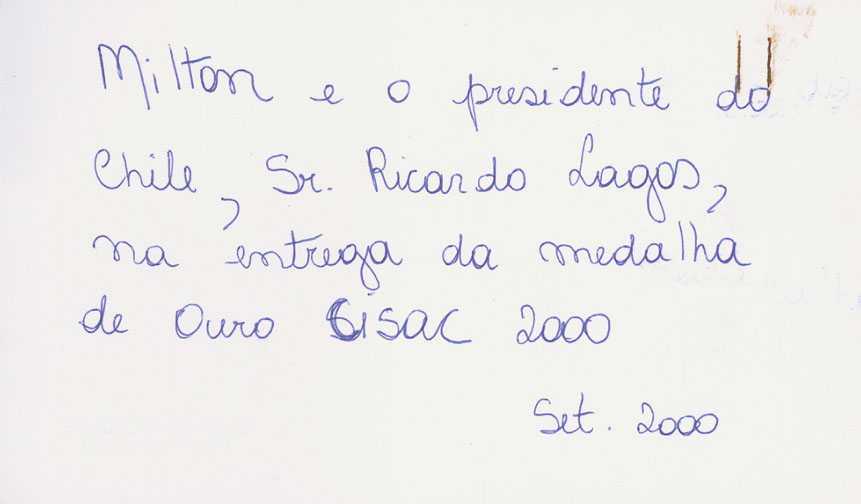 Milton e o presidente do
Chile, Sr. Ricardo Lagos,
na entrega da medalha
de Ouro CISAC 2000
Set. 2000